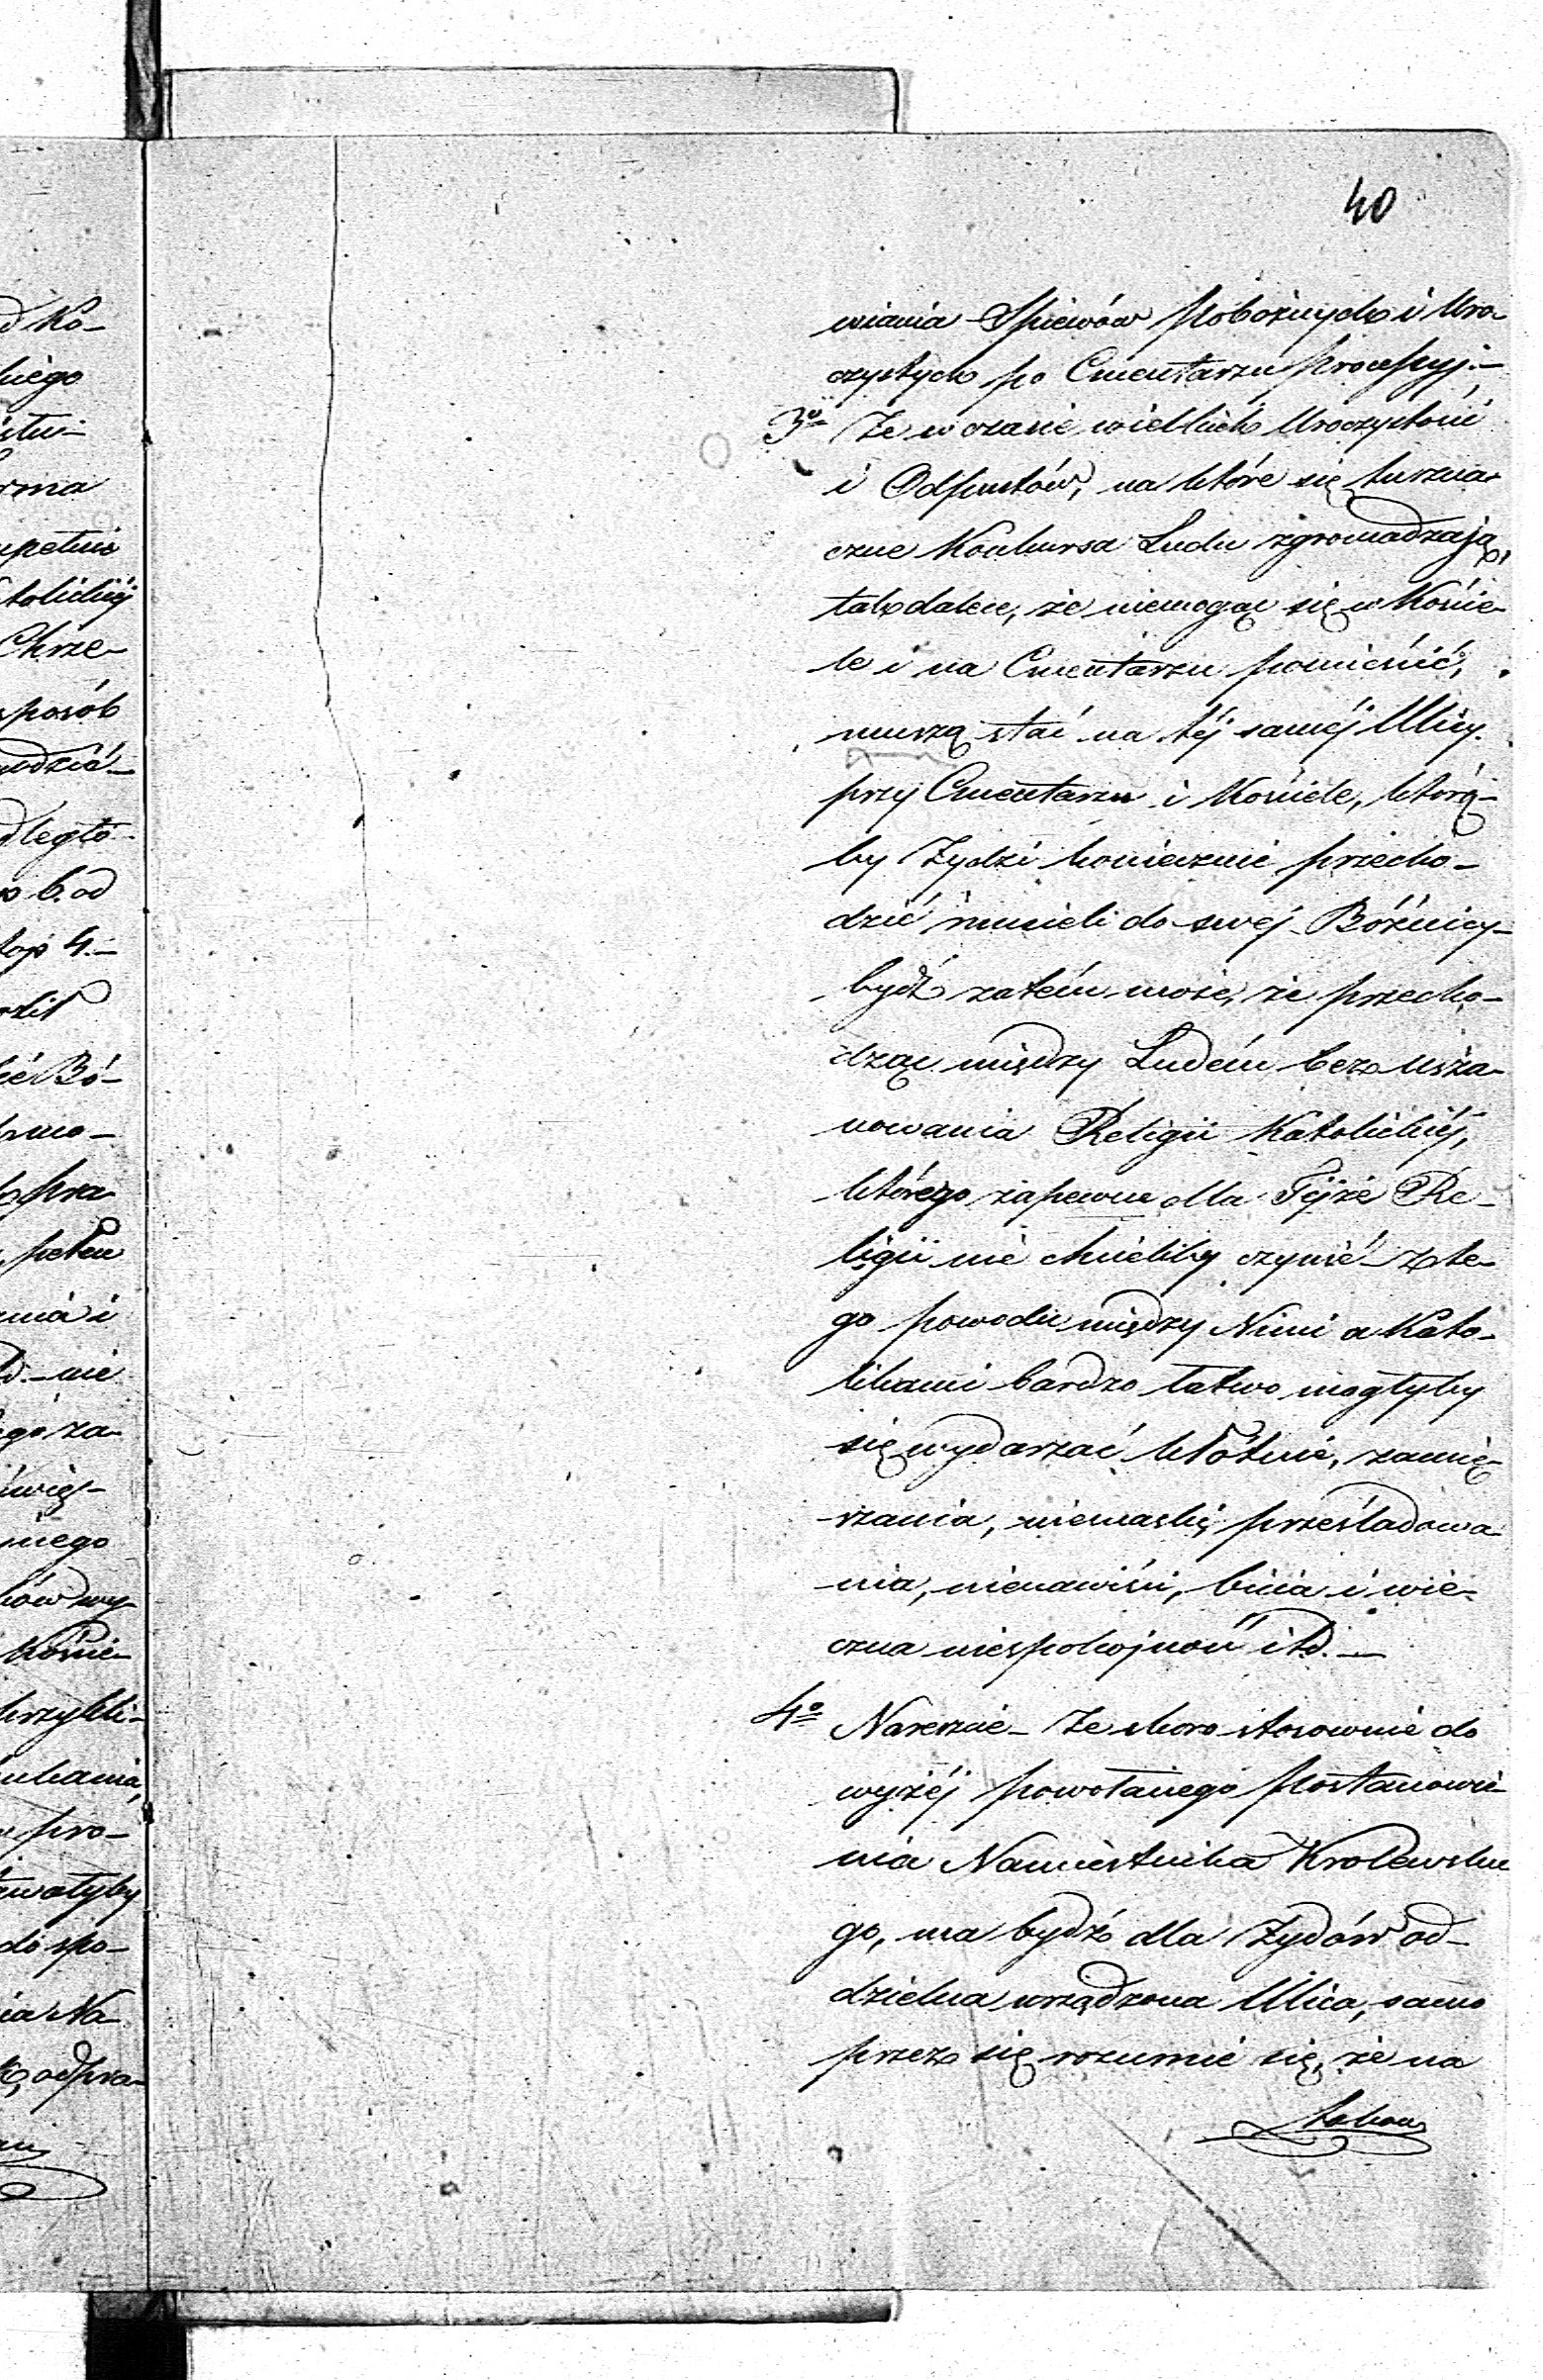 40
wiania Spiewów Pobożnych i Uro-
czystych po Cmentarzu Processyj.-
3o Że w czasie wielkich Uroczystość
i Odpustów, na które się tu zna-
czne Konkursa Ludu zgromadzają,
tak dalece, że niemogąc się w Koście-
le i na Cmentarzu pomieścić,
muszą stać na téj saméj Ulicy
przy Cmentarzu i Kościele, którą-
by Żydzi koniecznie przecho-
dzić musieli do swéj Bóźnicy-
bydź zatém może, że przecho-
dząc między Ludém bez usza-
nowania Religii Katolickiéj,
którego zapewne dla Téjże Re-
ligii nie chcieliby czynić z te-
go powodu między Nimi a Kato-
likami bardzo łatwo mogłyby
się wydarzać kłótnie, zamię-
rzania, niesnaski, prześladowa-
nia, nienawiści, bicia i wie-
czna niespokojność itd. —
4o Nareszcie - Że skoro stosownie do
wyżéj powołanego Postanowie-
nia Namiestnika Krolewskie
go, ma bydź dla Żydów od-
dzielna urządzona Ulica, samo
przez się rozumié się, że na
takow
d Ko-
kiego
rma
upełnie
tolickiéj
Chrze-
sposób
odzić-
dległo-
6. od
4.-
Bó-
pra-
nia i
nie
ego za-
świę-
Kościé-
przybli-
ukania,
pro-
do spo-
ia Na-
odpra-